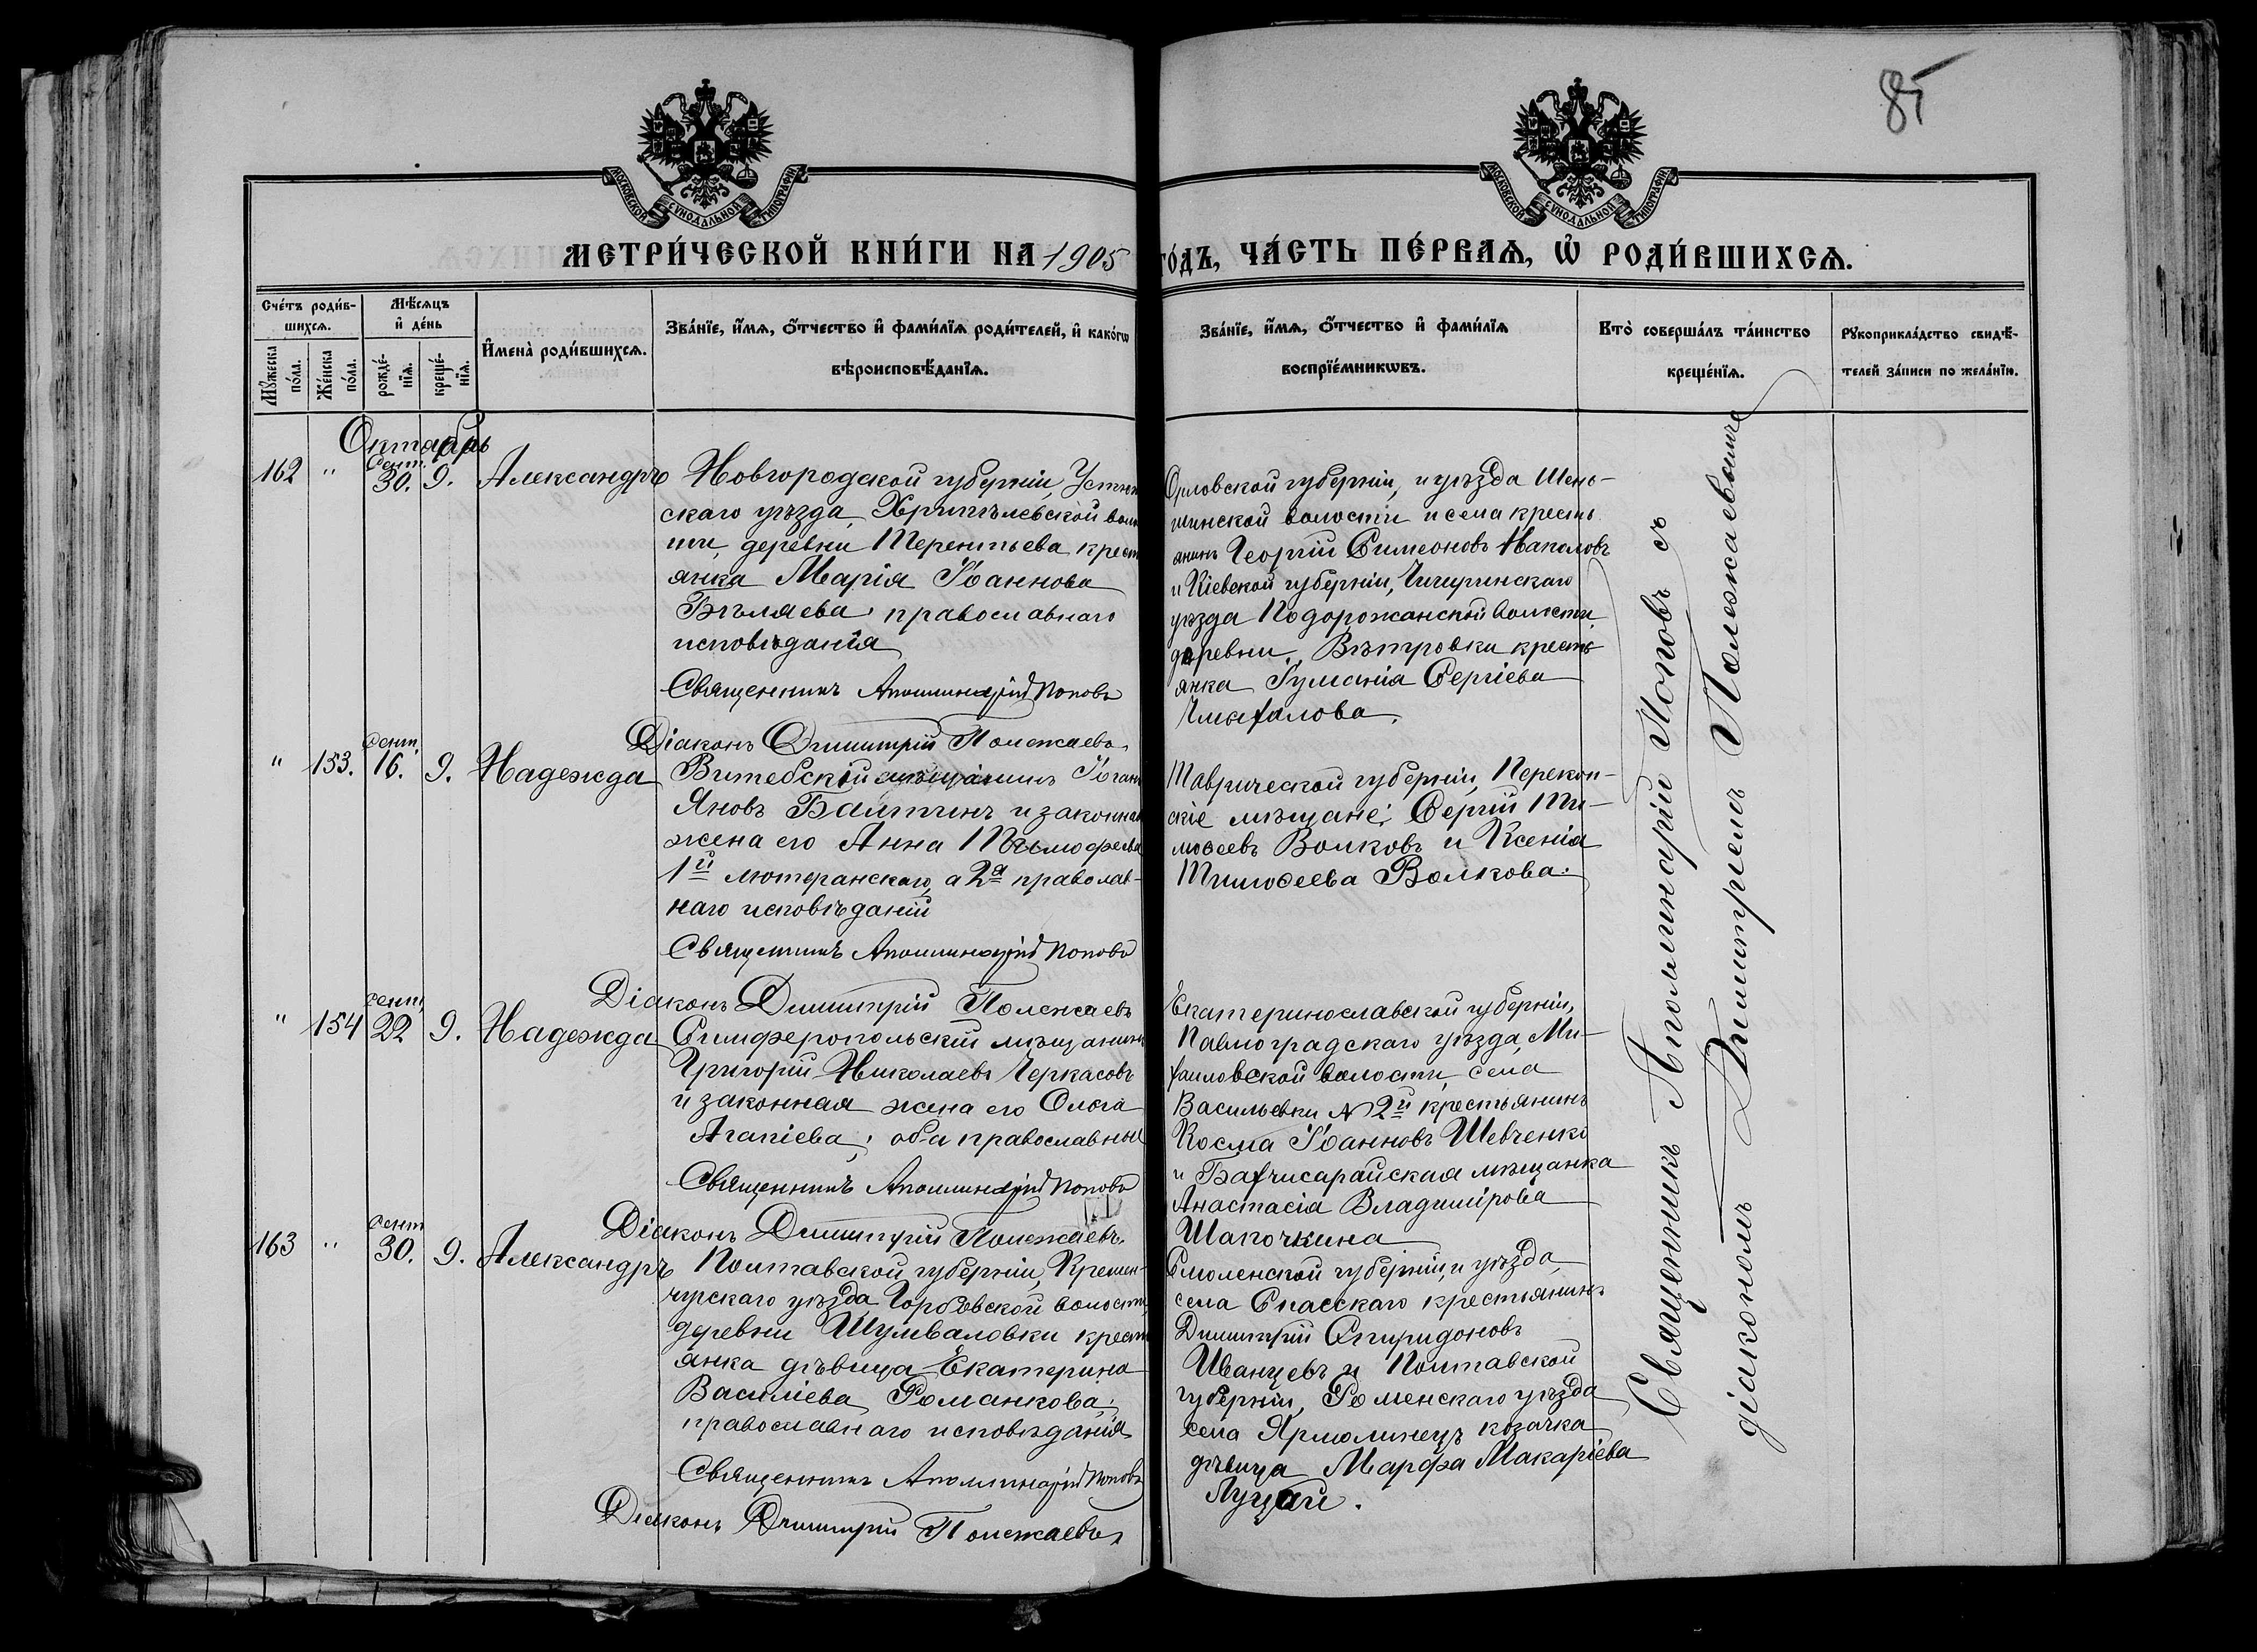 85
МОСКОВСКОЙ СѴНОДАЛЬНОЙ ТИПОГРАФІИ
МОСКОВСКОЙ СѴНОДАЛЬНОЙ ТИПОГРАФІИ
МЕТРИ́ЧЕСКОЙ КНИ́ГИ НА 1905 ГО́ДЪ, ЧА́СТЬ ПЕ́РВАѦ, Ѡ҆ РОДИ́ВШИХСѦ.
Сче́тъ роди́в-
шихсѧ.
Мꙋ́жеска по́ла.
Же́нска по́ла.
Мѣ́сѧцъ
и҆ де́нь
рожде́-
нїѧ.
креще́-
нїѧ.
И҆мена̀ роди́вшихсѧ.
Зва́нїе, и҆́мѧ, ѻ҆́тчество и҆ фами́лїѧ роди́телей, и҆ како́гѡ
вѣроисповѣ́данїѧ.
Зва́нїе, и҆́мѧ, ѻ҆́тчество и҆ фами́лїѧ
воспрїе́мникѡвъ.
Кто̀ соверша́лъ та́инство
креще́нїѧ.
Рꙋкоприкла́дство свидѣ́-
телей за́писи по жела́нїю.
Октябрь
162 " Сент. 30. 9. Александръ
Новгородской губерніи, Устюж
скаго уѣзда, воло
сти, деревни Терентьева крест
янка Марія Іоаннова
Бѣляева, православнаго
исповѣданія
Священникъ Аполлинарій Поповъ
Діаконъ Димитрій Полежаевъ
Орловской губерніи, и уѣзда Шень-
шинской волости и села кресть
янинъ Георгій Симеоновъ
и Кіевской губерніи, Чигиринскаго
уѣзда Подорожанской волости
деревни Вѣтровки кресть
янка Сергіева
" 153. Сент. 16. 9. Надежда
Витебскій мѣщанинъ Іоган
Яновъ Балтинъ и законная
жена его Анна Тимофеева
1й лютеранскаго, а 2я православ-
наго исповѣданій
Священникъ Аполлинарій Поповъ
Діаконъ Димитрій Полежаевъ
Таврической губерніи, Перекоп-
скіе мѣщане: Сергій Ти-
моѳеевъ Волковъ и Ксенія
Тимоѳеева Волкова.
" 154 сент 22 9. Надежда
Симферопольскій мѣщанинъ
Григорій Николаевъ Черкасовъ
и законная жена его Ольга
Агапіева, оба православные
Священникъ Аполлинарій Поповъ
Діаконъ Димитрій Полежаевъ
Екатеринославской губерніи,
Павлоградскаго уѣзда, Ми-
хайловской волости, села
Васильевки № 2й крестьянинъ
Косма Іоанновъ Шевченко
и Бахчисарайская мѣщанка
Анастасія Владимірова
Шапочкина
163 " сент 30. 9. Александръ
Полтавской губерніи, Кремен-
чугскаго уѣзда, Горбовской волости,
деревни Шумваловки крест
янка дѣвица Екатерина
Василіева Романкова,
православнаго исповѣданія
Священникъ Аполлинарій Поповъ
Діаконъ Димитрій Полежаевъ
Смоленской губерніи, и уѣзда,
села Спасскаго крестьянинъ
Димитрій Спиридоновъ
Иванцевъ и Полтавской
губерніи, Роменскаго уѣзда
села Ярмолинецъ козачка
дѣвица Марфа Макаріева
Луцай.
Священникъ Аполлинарій Поповъ съ
діакономъ Димитріемъ Полежаевымъ